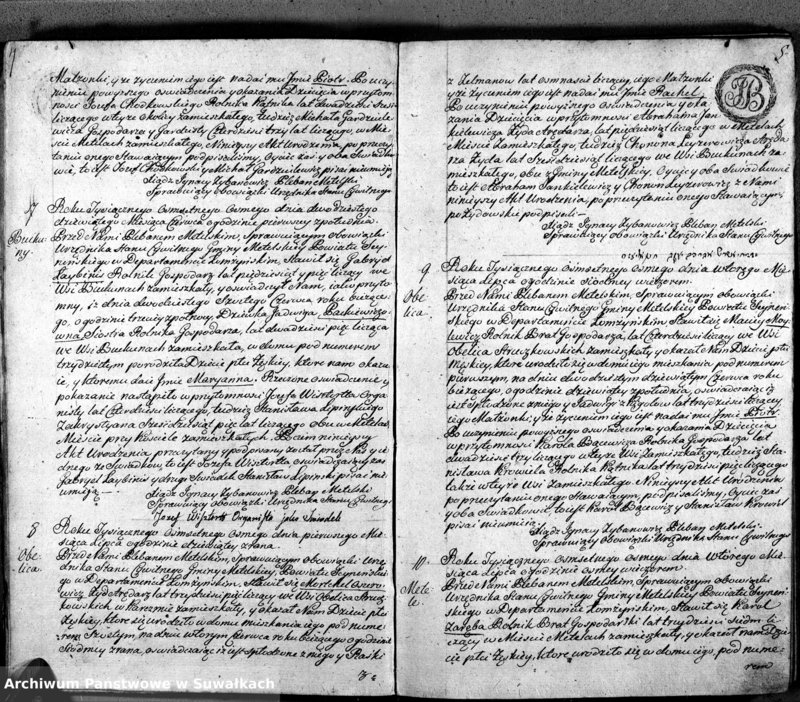 Małżonki, y że życzeniem jego jest nadać mu Jmie Piotr. Po uczy-
nieniu powyższego oświadczenia y okazania Dziecięcia w przytom-
ności Jozefa Chodkowskiego Rolnika Kątnika lat dwadzieścia sześć
liczącego w teyże Okolicy zamieszkałego, tudzież Michała Gardziule-
wicza Gospodarza y Gardzisty Czterdzieści trzy lat liczącego, w Mie-
ście Metelach zamieszkałego. Niniejszy Akt Urodzenia, po przeczy-
taniu onego Stawającym podpisaliśmy. Oyciec zaś y oba Świadko-
wie, to jest Jozef Chodkowski y Michał Gardziulewicz pisać nie umieją
Xiądz Jgnacy Rybanowicz Pleban Metelski
Sprawuiący obowiązki Urzędnika Stanu Cywilnego
7
Buckuny.
Roku Tysiącznego Osmsetnego Osmego dnia dwudziestego
dziewiątego Miesiąca Czerwca o godzinie pierwszey z południa.
Przed Nami Plebanem Metelskim, Sprawuiącym Obowiązki
Urzędnika Stanu Cywilnego Gminy Metelskiey Powiatu Sey-
neńskiego w Departamencie Łomżyńskim, Stawił się Gabryel
Rolnik Gospodarz, lat pięćdziesiąt y pięć liczący we
Wsi Buckunach zamieszkały, y oświadczył Nam, iako przyto-
mny, iż dnia dwudziestego Szóstego Czerwca roku bieżące-
go, o godzinie trzeciey z południa, Dziewka Jadwiga
Siostra Rolnika Gospodarza, lat dwadzieścia pięć licząca
we Wsi Buckunach zamieszkała, w domu pod numerem
trzydziestym porodziła Dziecię płci Żeńskiey, które nam okaza-
ie, y któremu daie Jmie Maryanna. Rzeczone oświadczenie y
pokazanie nastąpiło w przytomności Jozefa Wistortta Orga-
nisty lat Czterdzieści liczącego, tudzież Stanisława Lipinskiego
Zakrystyana Sześćdziesiąt pięć lat liczącego Obu w Metelach
Mieście przy Kościele zamieszkałych. Poczem niniejszy
Akt Urodzenia przeczytany y podpisany został przez Nas y ie-
dnego ze Świadków, to iest Jozefa Wistortta oświadczaiąc zaś
y drugi Świadek Stanisław Lipinski pisać nie
umieją.
Xiądz Jgnacy Rybanowicz Pleban Metelski
Sprawuiący obowiązki Urzędnika Stanu Cywilnego.
Jozef Organista jako Swiadek
8
Obelica.
Roku Tysiącznego Osmsetnego Osmego dnia pierwszego Mie-
siąca Lipca o godzinie dziewiątey z rana.
Przed Nami Plebanem Metelskim, Sprawuiącym Obowiązki Urzę-
dnika Stanu Cywilnego Gminy Metelskiey, Powiatu Seyneńskie-
go w Departamencie Łomżyńskim, Stawił się
Żyd Arędarz, lat trzydzieści pięć liczący we Wsi Obelica Krucz-
kowskich w Karczmie zamieszkały, y okazał Nam Dziecię płci
Żeńskiey, które się urodziło w domu mieszkania jego pod nume-
rem Szóstym, na dniu wtorym Czerwca roku bieżącego o godzinie
Siódmey z rana, oświadczaiąc iż jest spłodzone z niego y Raski
5
z Zelmanow lat osmnaście liczącey, jego Małżonki
y że życzeniem jego jest nadać mu Jmie Rachel.
Po uczynieniu powyższego oświadczenia y oka-
zania Dziecięcia w przytomności Abrahama Jan-
kielewicza Żyda Arędarza, lat pięćdziesiąt liczącego w Metelach
Mieście Zamieszkałego, tudzież Chonona Leyzerowicza Aręda-
rza Żyda lat Sześćdziesiąt liczącego we Wsi Buckunach za-
mieszkałego, obu z Gminy Metelskiey. Oyciec y oba Świadkowie
to jest Abraham Jankielewicz y Chonon Leyzerowicz z Nami
niniejszy Akt Urodzenia, po przeczytaniu onego Stawaiącym,
po żydowsku podpisali.
Xiądz Jgnacy Rybanowicz Pleban Metelski
Sprawuiący obowiązki Urzędnika Stanu Cywilnego
9
Obelica.
Roku Tysiącznego Osmsetnego Osmego dnia wtorego Mie-
siąca Lipca o godzinie Siódmey wieczorem.
Przed Nami Plebanem Metelskim, Sprawuiącym obowiązki
Urzędnika Stanu Cywilnego Gminy Metelskiey Powiatu Seyneń-
skiego w Departamencie Łomżyńskim, Stawił się Maciey
Rolnik Brat Gospodarza, lat Czterdzieści liczący we Wsi
Obelica Kruczkowskich zamieszkały y okazał Nam Dziecię płci
Męskiey, które urodziło się w domu iego mieszkania pod numerem
pierwszym, na dniu dwudziestym dziewiątym Czerwca roku
bieżącego, o godzinie dziewiątey z południa, oświadczaiąc iż
jest spłodzone z niego y lat trzydzieści liczącey
jego Małżonki; y że życzeniem iego jest nadać mu Jmie Piotr.
Po uczynieniu powyższego oświadczenia y okazania Dziecięcia
w przytomności Karola Bacewicza Rolnika Gospodarza lat
dwadzieścia trzy liczącego w teyże Wsi Zamieszkałego, tudzież Sta-
nisława Krowiela Rolnika Kątnika lat trzydzieści pięć liczącego
także w teyże Wsi zamieszkałego. Niniejszy Akt Urodzenia
po przeczytaniu onego Stawaiącym, podpisaliśmy, Oyciec zaś
y oba Świadkowie to jest Karol Bacewicz y Stanisław Krowiel
pisać nie umieją.
Xiądz Jgnacy Rybanowicz Pleban Metelski.
Sprawuiący obowiązki Urzędnika Stanu Cywilnego
10.
Metele.
Roku Tysiącznego Osmsetnego Osmego dnia Wtorego Mie-
siąca Lipca o godzinie osmey wieczorem.
Przed Nami Plebanem Metelskim, Sprawuiącym obowiązki
Urzędnika Stanu Cywilnego Gminy Metelskiey Powiatu Seyneń-
skiego w Departamencie Łomżyńskim, Stawił się Karol
Zaręba Rolnik Brat Gospodarski lat trzydzieści siedm li-
czący w Mieście Metelach zamieszkały, y okazał nam Dzie-
cię płci Żeńskiey, które urodziło się w domu iego, pod nume-
rem
Archiwum Państwowe w Suwałkach